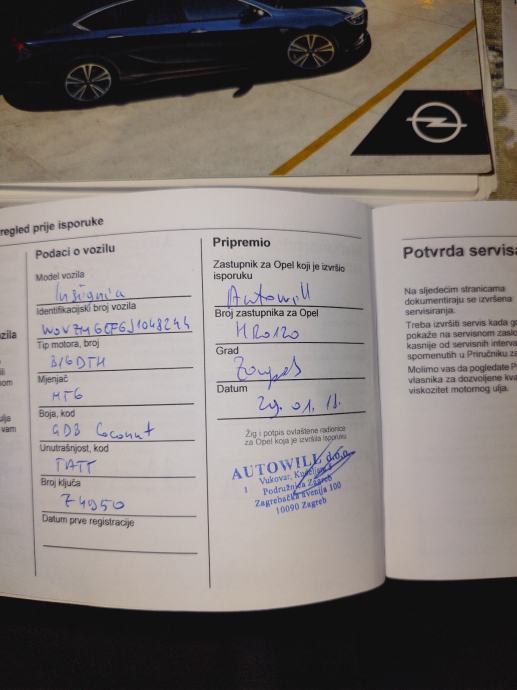 regled prije isporuke
Podaci o vozilu
Model vozila
Insignia
Identifikacijski broj vozila
W0VZM6EF6J1048244
Tip motora, broj
B16DTH
Mjenjač
MT6
Boja, kod
GDB Coconut
Unutrašnjost, kod
TATT
Broj ključa
Z4950
Datum prve registracije
Pripremio
Zastupnik za Opel koji je izvršio
isporuku
Autowill
Broj zastupnika za Opel
HR0120
Grad
Zagreb
Datum
29.01.18.
Žig i potpis ovlaštene radionice
za Opel koja je izvršila isporuku
AUTOWILL d.o.o.
Vukovar,
1 Podružnica Zagreb
Zagrebačka avenija 100
10090 Zagreb
Potvrda servisa
Na sljedećim stranicama
dokumentiraju se izvršena
servisiranja.
Treba izvršiti servis kada
pokaže na servisnom
kasnije od servisnih
spomenutih u Priručniku za
Molimo vas da pogledate
vlasnika za dozvoljene
viskozitet motornog ulja.